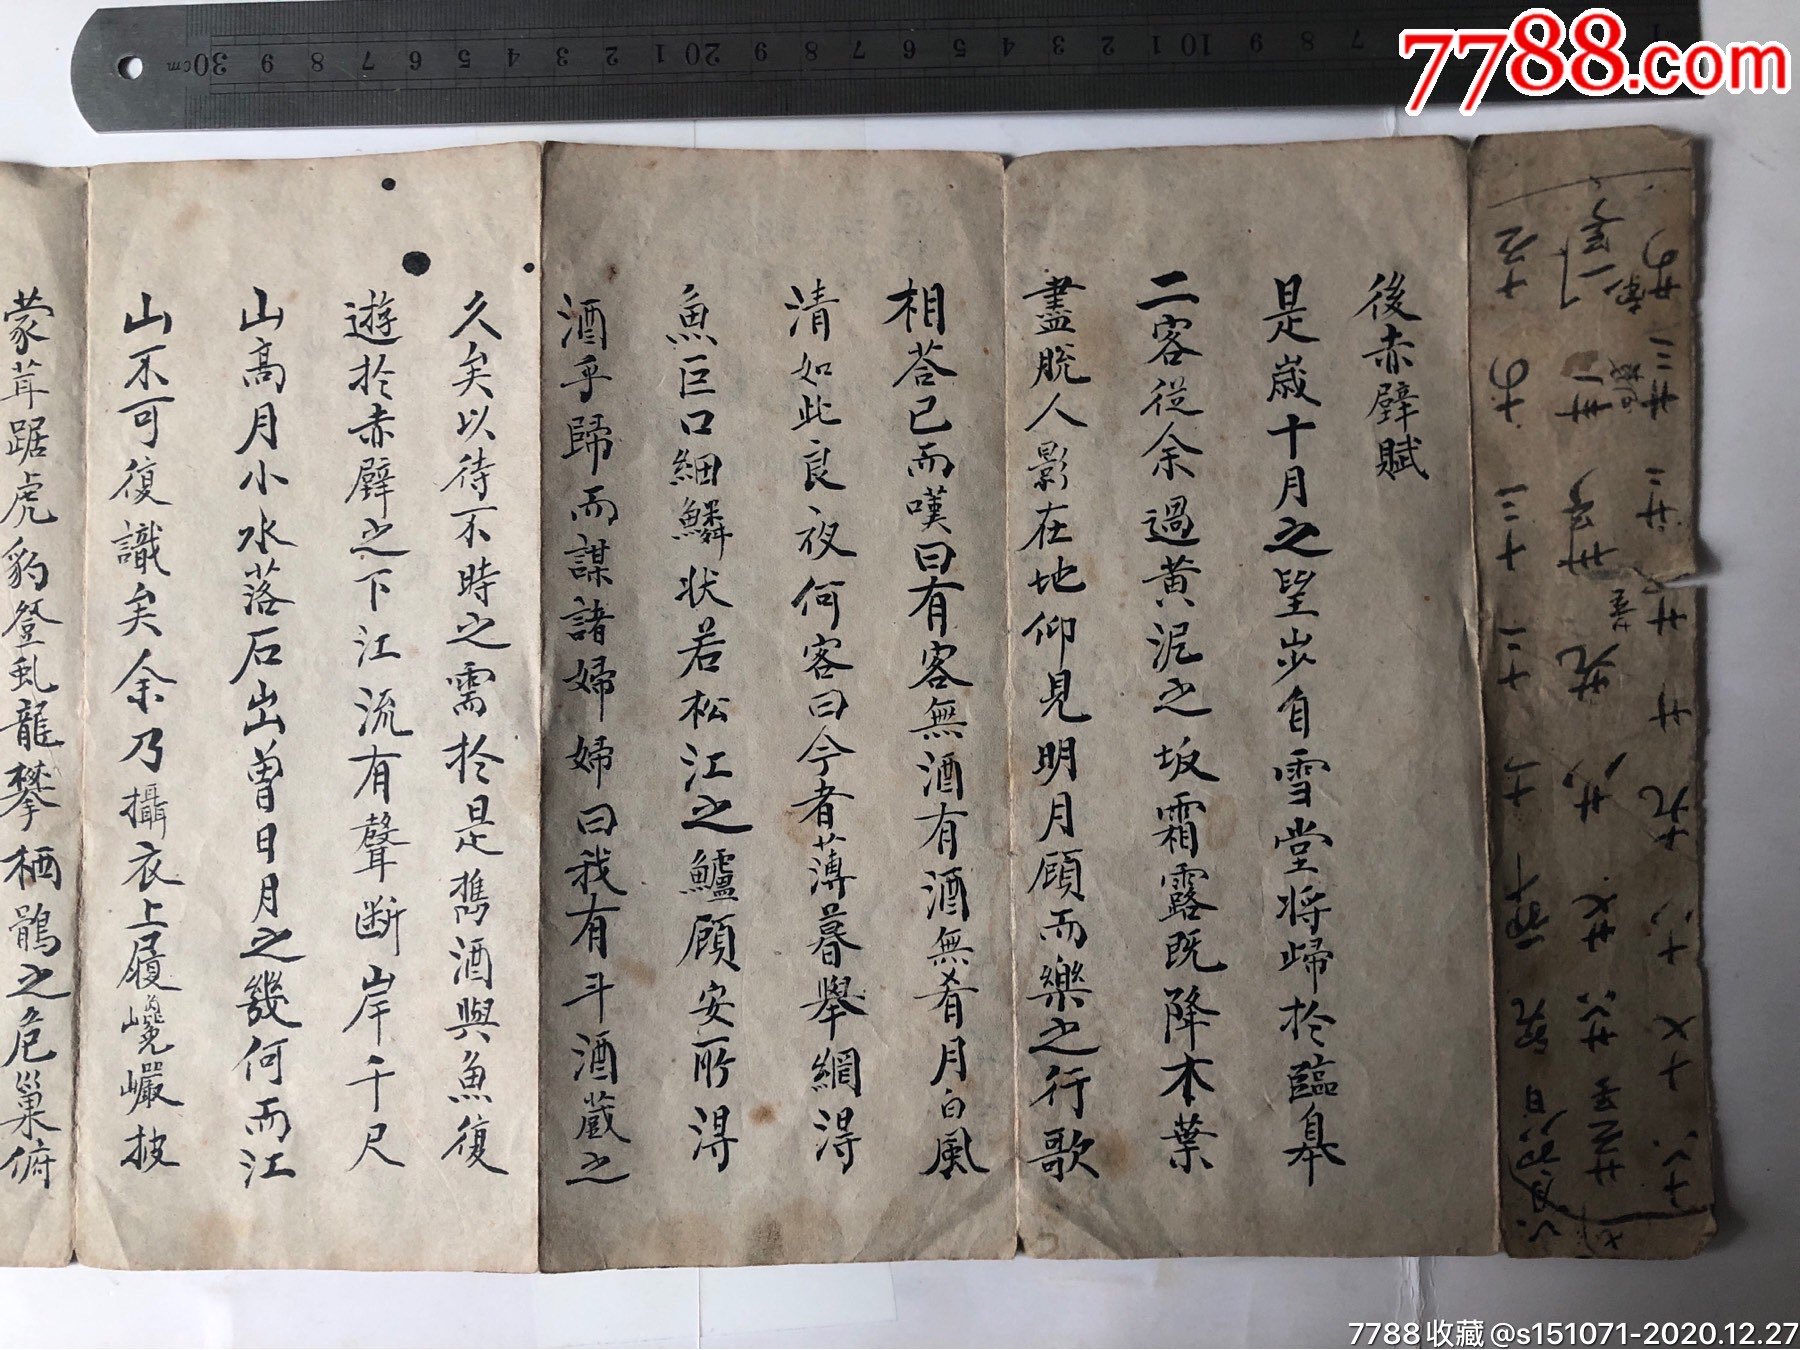 後赤壁賦
是歲十月之望步自雪堂將歸於臨皋
二客從余過黃泥之坂霜露既降木葉
盡脫人影在地仰見明月顧而樂之行歌
相荅已而嘆曰有客無酒有酒無肴月白風
清如此良夜何客曰今者薄暮舉網得
魚巨口細鱗状若松江之鱸顧安所得
酒乎歸而謀諸婦婦曰我有斗酒蔵之
久矣以待不時之需於是携酒與魚復
遊於赤壁之下江流有聲断岸千尺
山高月小水落石出曾日月之幾何而江
山不可復識矣余乃攝衣上履巉巖披
蒙茸踞虎豹登虬龍攀栖鶻之危巢俯
30cm 9 8 7 6 5 4 3 2 1 20 9 8 7 6 5 4 3 2 1 10 9 8 7
7788.com
7788收藏@s151071-2020.12.27